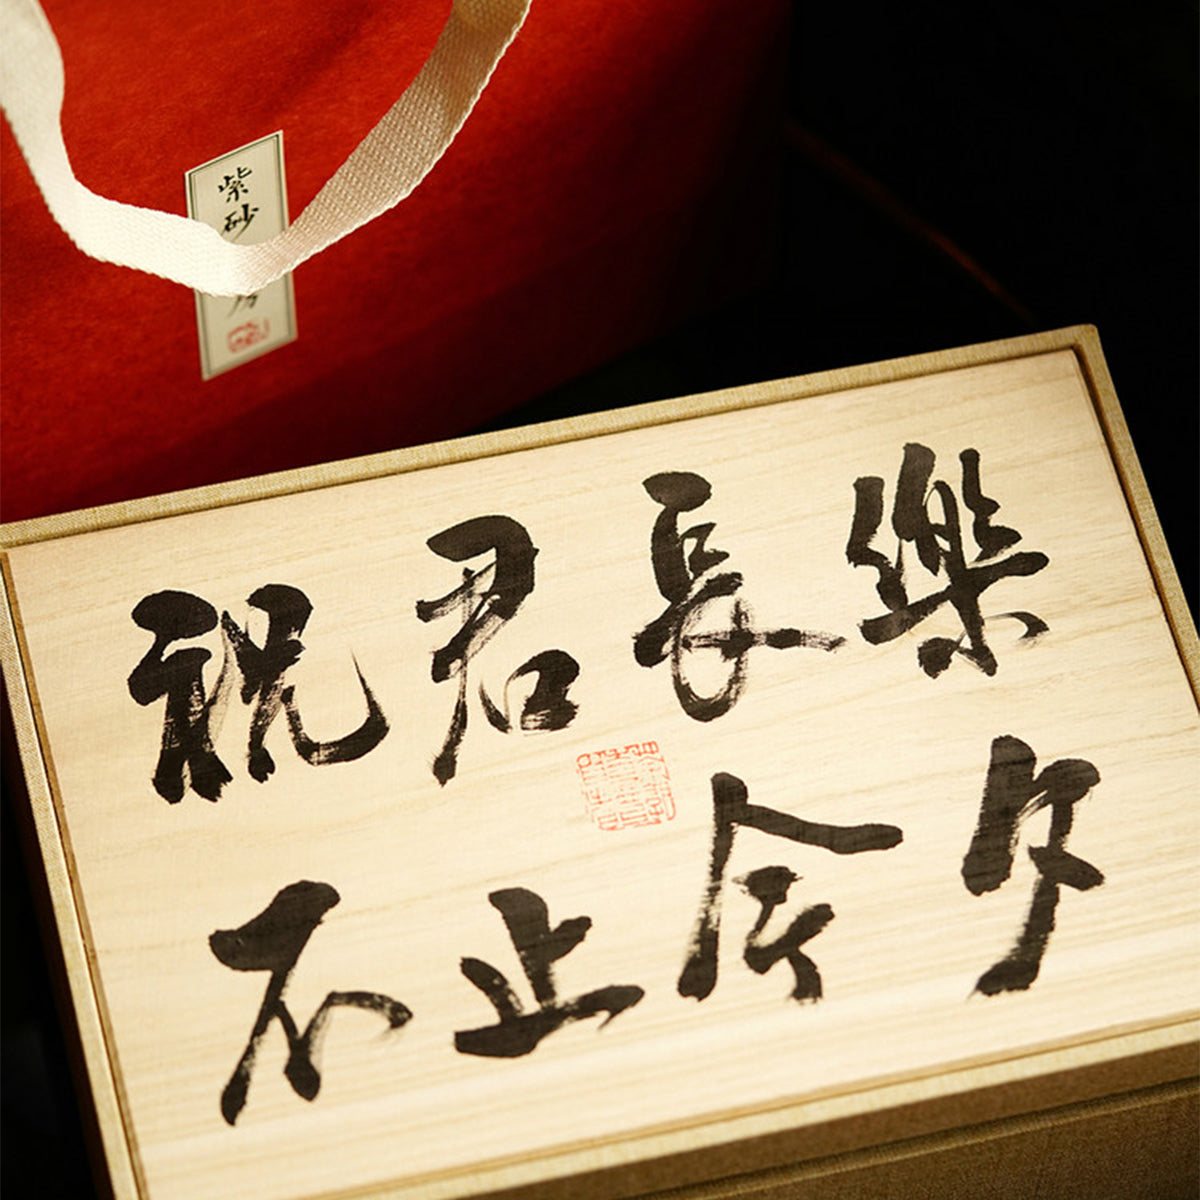 紫砂
祝君長樂
不止今夕